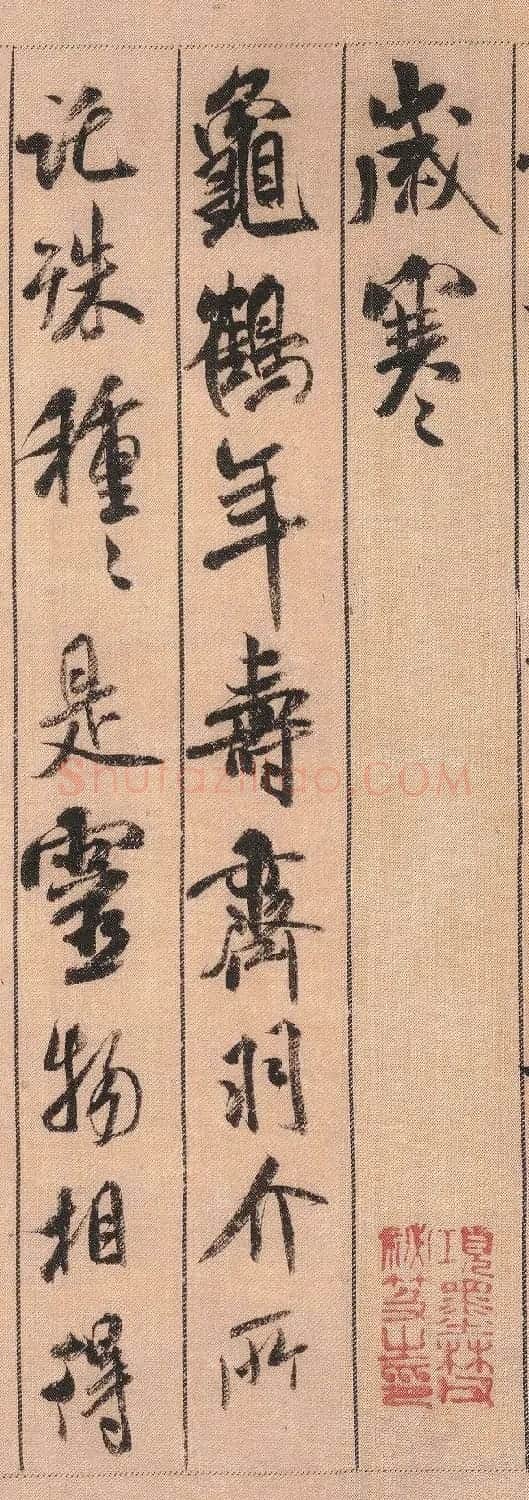 歲寒〻
龜鶴年壽齊羽介所
託殊種〻是靈物相得
Shufaziliao.COM